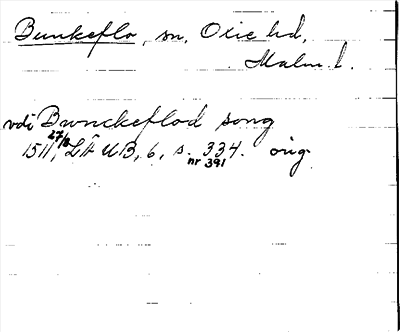 Bunkeflo, sn, Oxie hd,
Malm. l.
vdi Bwnckeflod song
1511 27/8, LÄUB, 6, s. 334. orig.
nr 391